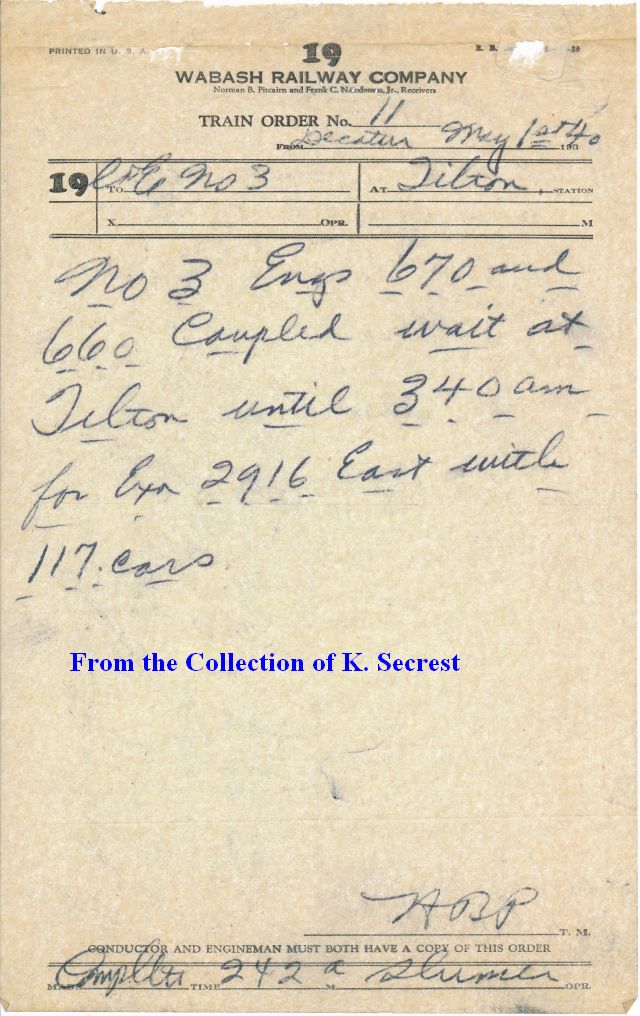 PRINTED IN U. S. A.
19
WABASH RAILWAY COMPANY
Norman B. Pitcairn and Frank C. Nicodemus, Jr., Receivers
TRAIN ORDER No. 11
FROM Decatur May 1st 40 193
19 TO C&E No 3 AT Tilton, STATION
X OPR. M
No 3 Engs 670 and
660 Coupled wait at
Tilton until 340 am
for Exa 2916 East with
117 cars
From the Collection of K. Secrest
HBP
T. M.
CONDUCTOR AND ENGINEMAN MUST BOTH HAVE A COPY OF THIS ORDER
MADE Complete TIME 242 a M OPR.